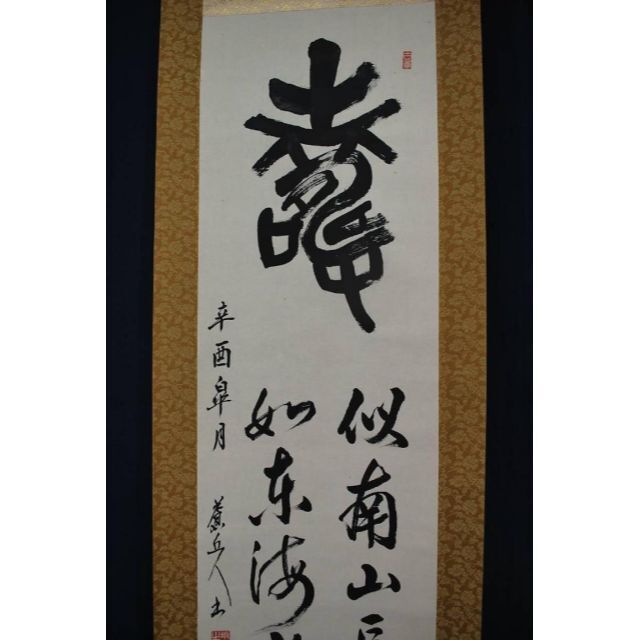 壽
似南山
如东海
辛酉皐月